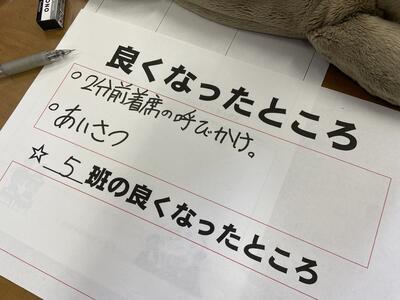 良くなったところ
○2分前着席の呼びかけ。
○あいさつ
☆ 5 班の良くなったところ
MONO